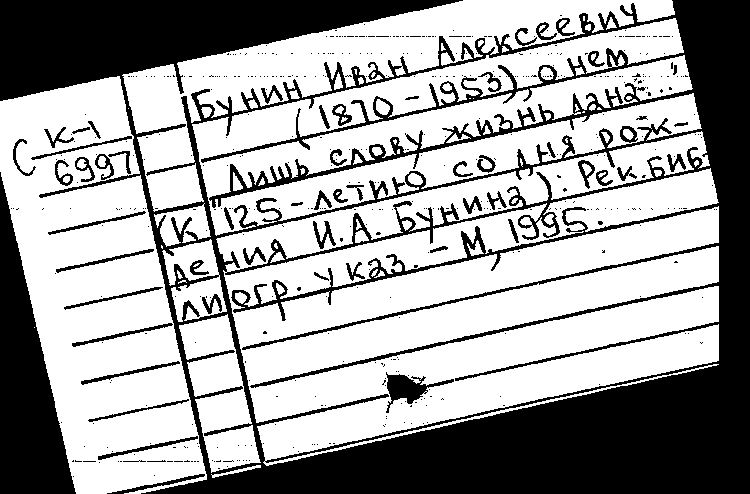 Бунин, Иван Алексеевич
(1870-1953), о нем
С К-1
6997
"Лишь слову жизнь дана..."
(К 125-летию со дня рож-
дения И.А. Бунина): Рек. биб-
лиогр. указ. - М., 1995.